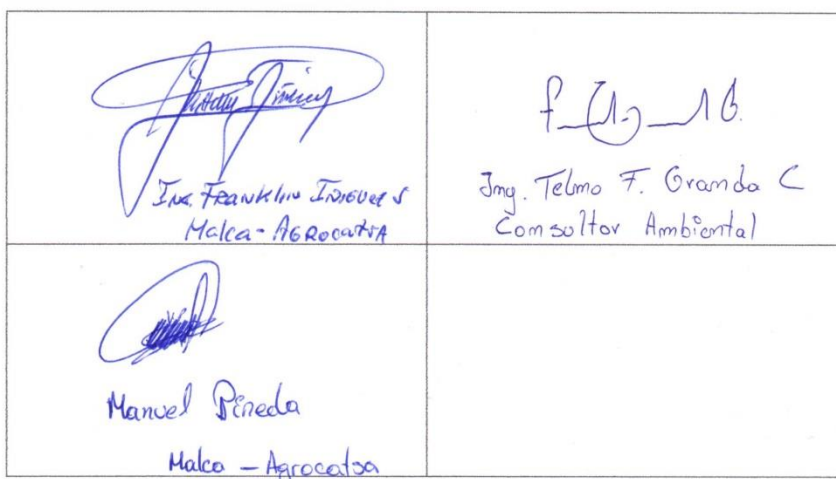 Ing. Franklin Iniguez S
Malca - Agrocatsa
Ing. Telmo F. Granda C
Consultor Ambiental
Manuel Pineda
Malca - Agrocatsa